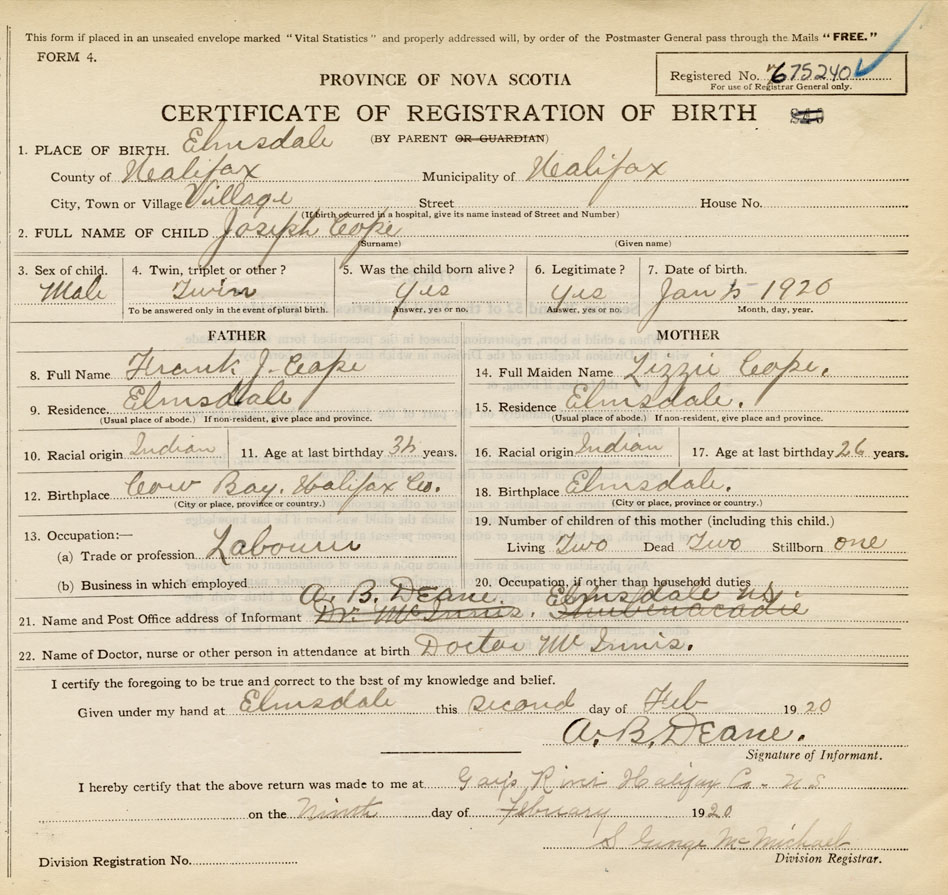 This form if placed in an unsealed envelope marked "Vital Statistics" and properly addressed will, by order of the Postmaster General pass through the Mails "FREE."
FORM 4.
Registered No. 675240
For use of Registrar General only.
PROVINCE OF NOVA SCOTIA
CERTIFICATE OF REGISTRATION OF BIRTH
(BY PARENT OR GUARDIAN)
1. PLACE OF BIRTH. Elmsdale
County of Halifax Municipality of Halifax
City, Town or Village Village Street House No.
(If birth occurred in a hospital, give its name instead of Street and Number)
2. FULL NAME OF CHILD Joseph Cope
(Surname) (Given name)
3. Sex of child. 4. Twin, triplet or other? 5. Was the child born alive? 6. Legitimate? 7. Date of birth.
Male Twin Yes Yes Jan 1920
To be answered only in the event of plural birth. Answer, yes or no. Answer, yes or no. Month, day, year.
FATHER MOTHER
8. Full Name Frank J. Cope 14. Full Maiden Name Lizzie Cope.
9. Residence. Elmsdale 15. Residence Elmsdale.
(Usual place of abode.) If non-resident, give place and province. (Usual place of abode.) If non-resident, give place and province.
10. Racial origin Indian 11. Age at last birthday years. 16. Racial origin Indian 17. Age at last birthday 26 years.
12. Birthplace Cow Bay. Halifax Co. 18. Birthplace Elmsdale.
(City or place, province or country.) (City or place, province or country.)
13. Occupation:— 19. Number of children of this mother (including this child.)
(a) Trade or profession Labourer Living Two Dead Two Stillborn one
(b) Business in which employed 20. Occupation, if other than household duties
A. B. Deane. Elmsdale NS
21. Name and Post Office address of Informant Dr. McInnis. Shubenacadie
22. Name of Doctor, nurse or other person in attendance at birth Doctor McInnis.
I certify the foregoing to be true and correct to the best of my knowledge and belief.
Given under my hand at Elmsdale this second day of Feb 1920
A. B. Deane.
Signature of Informant.
I hereby certify that the above return was made to me at Gays River Halifax Co - N.S
on the Ninth day of February 1920
S George McMichael
Division Registrar.
Division Registration No.